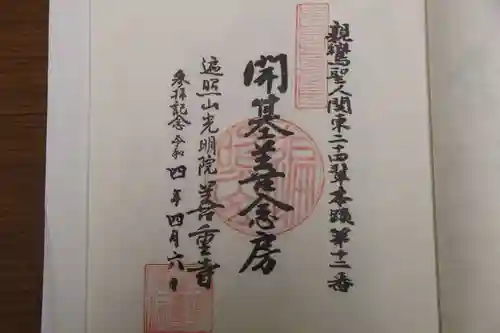 親鸞聖人関東二十四輩本蹟第十二番
開基善念房
遍照山光明院善重寺
参拝記念令和四年四月六日